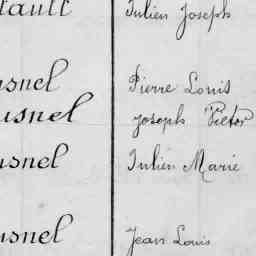 Julien Joseph
Pierre Louis
usnel Joseph Victor
usnel Julien Marie
usnel Jean Louis